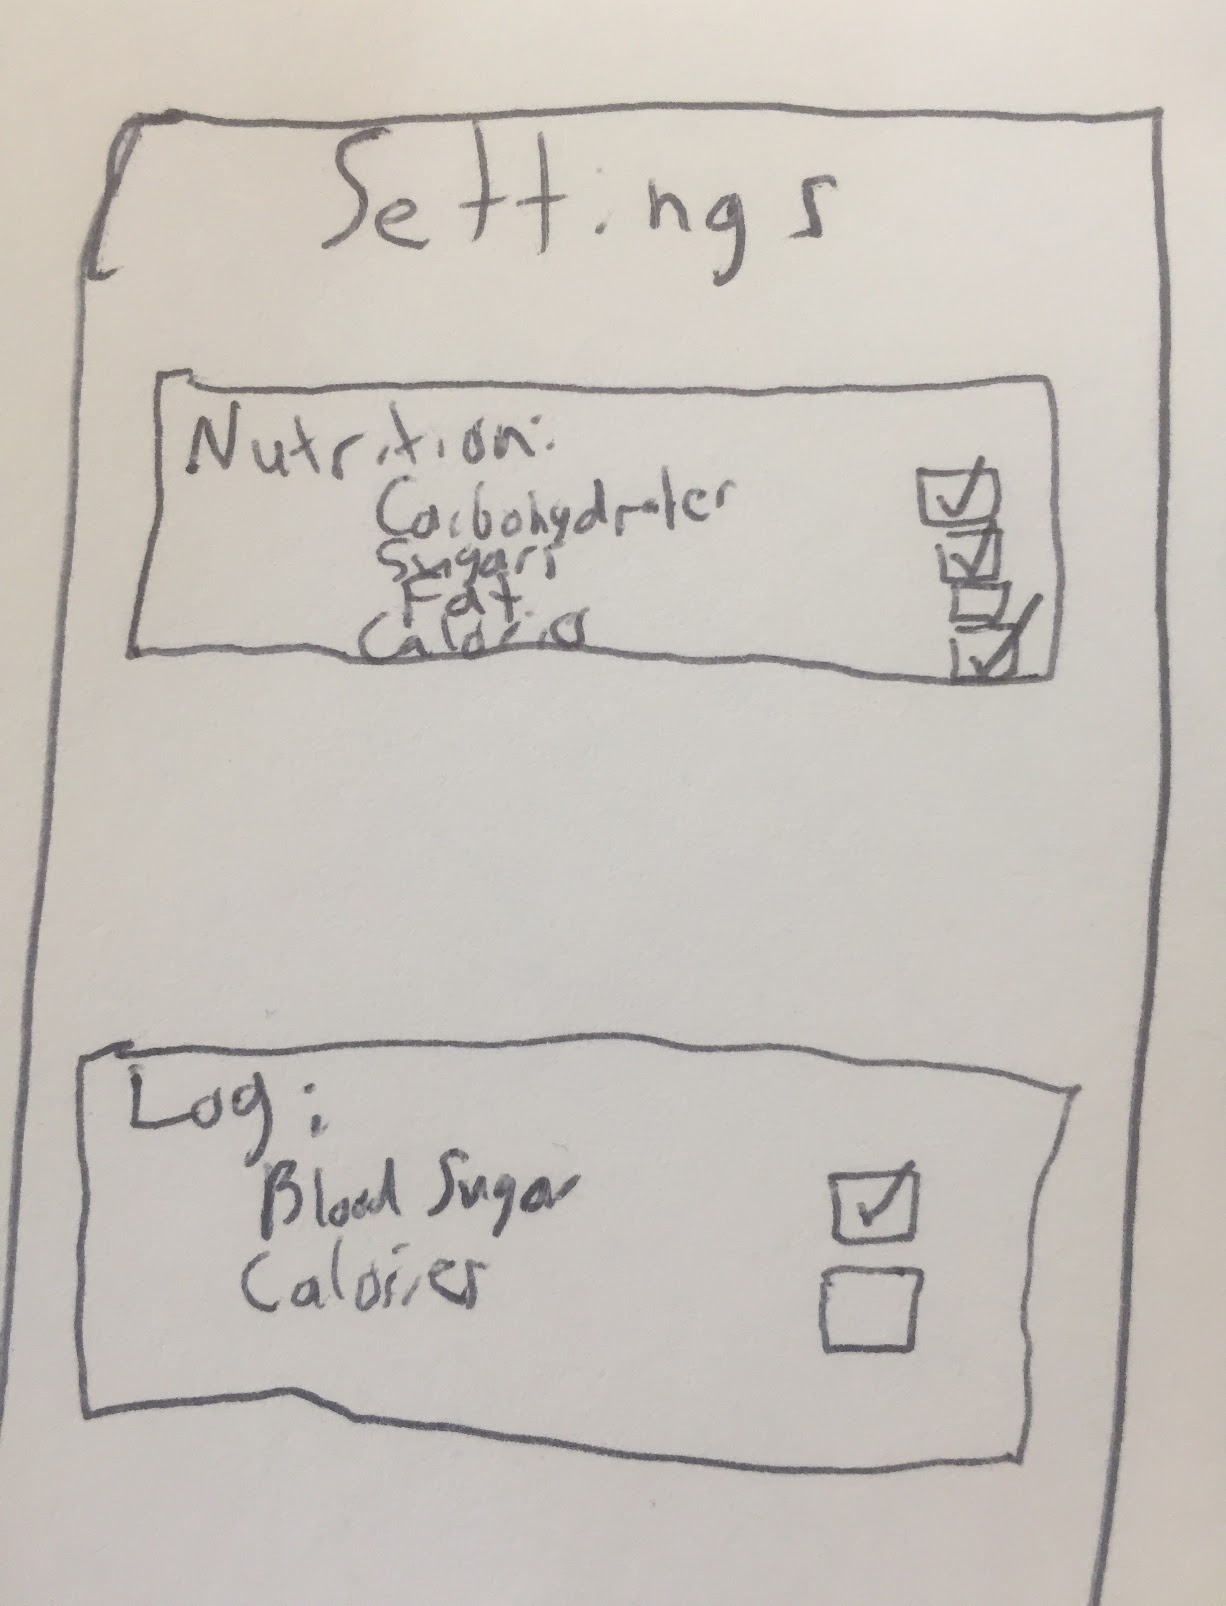 Settings
Nutrition:
Carbohydrates
Sugars
Fat
Calories
Log:
Blood Sugar
Calories